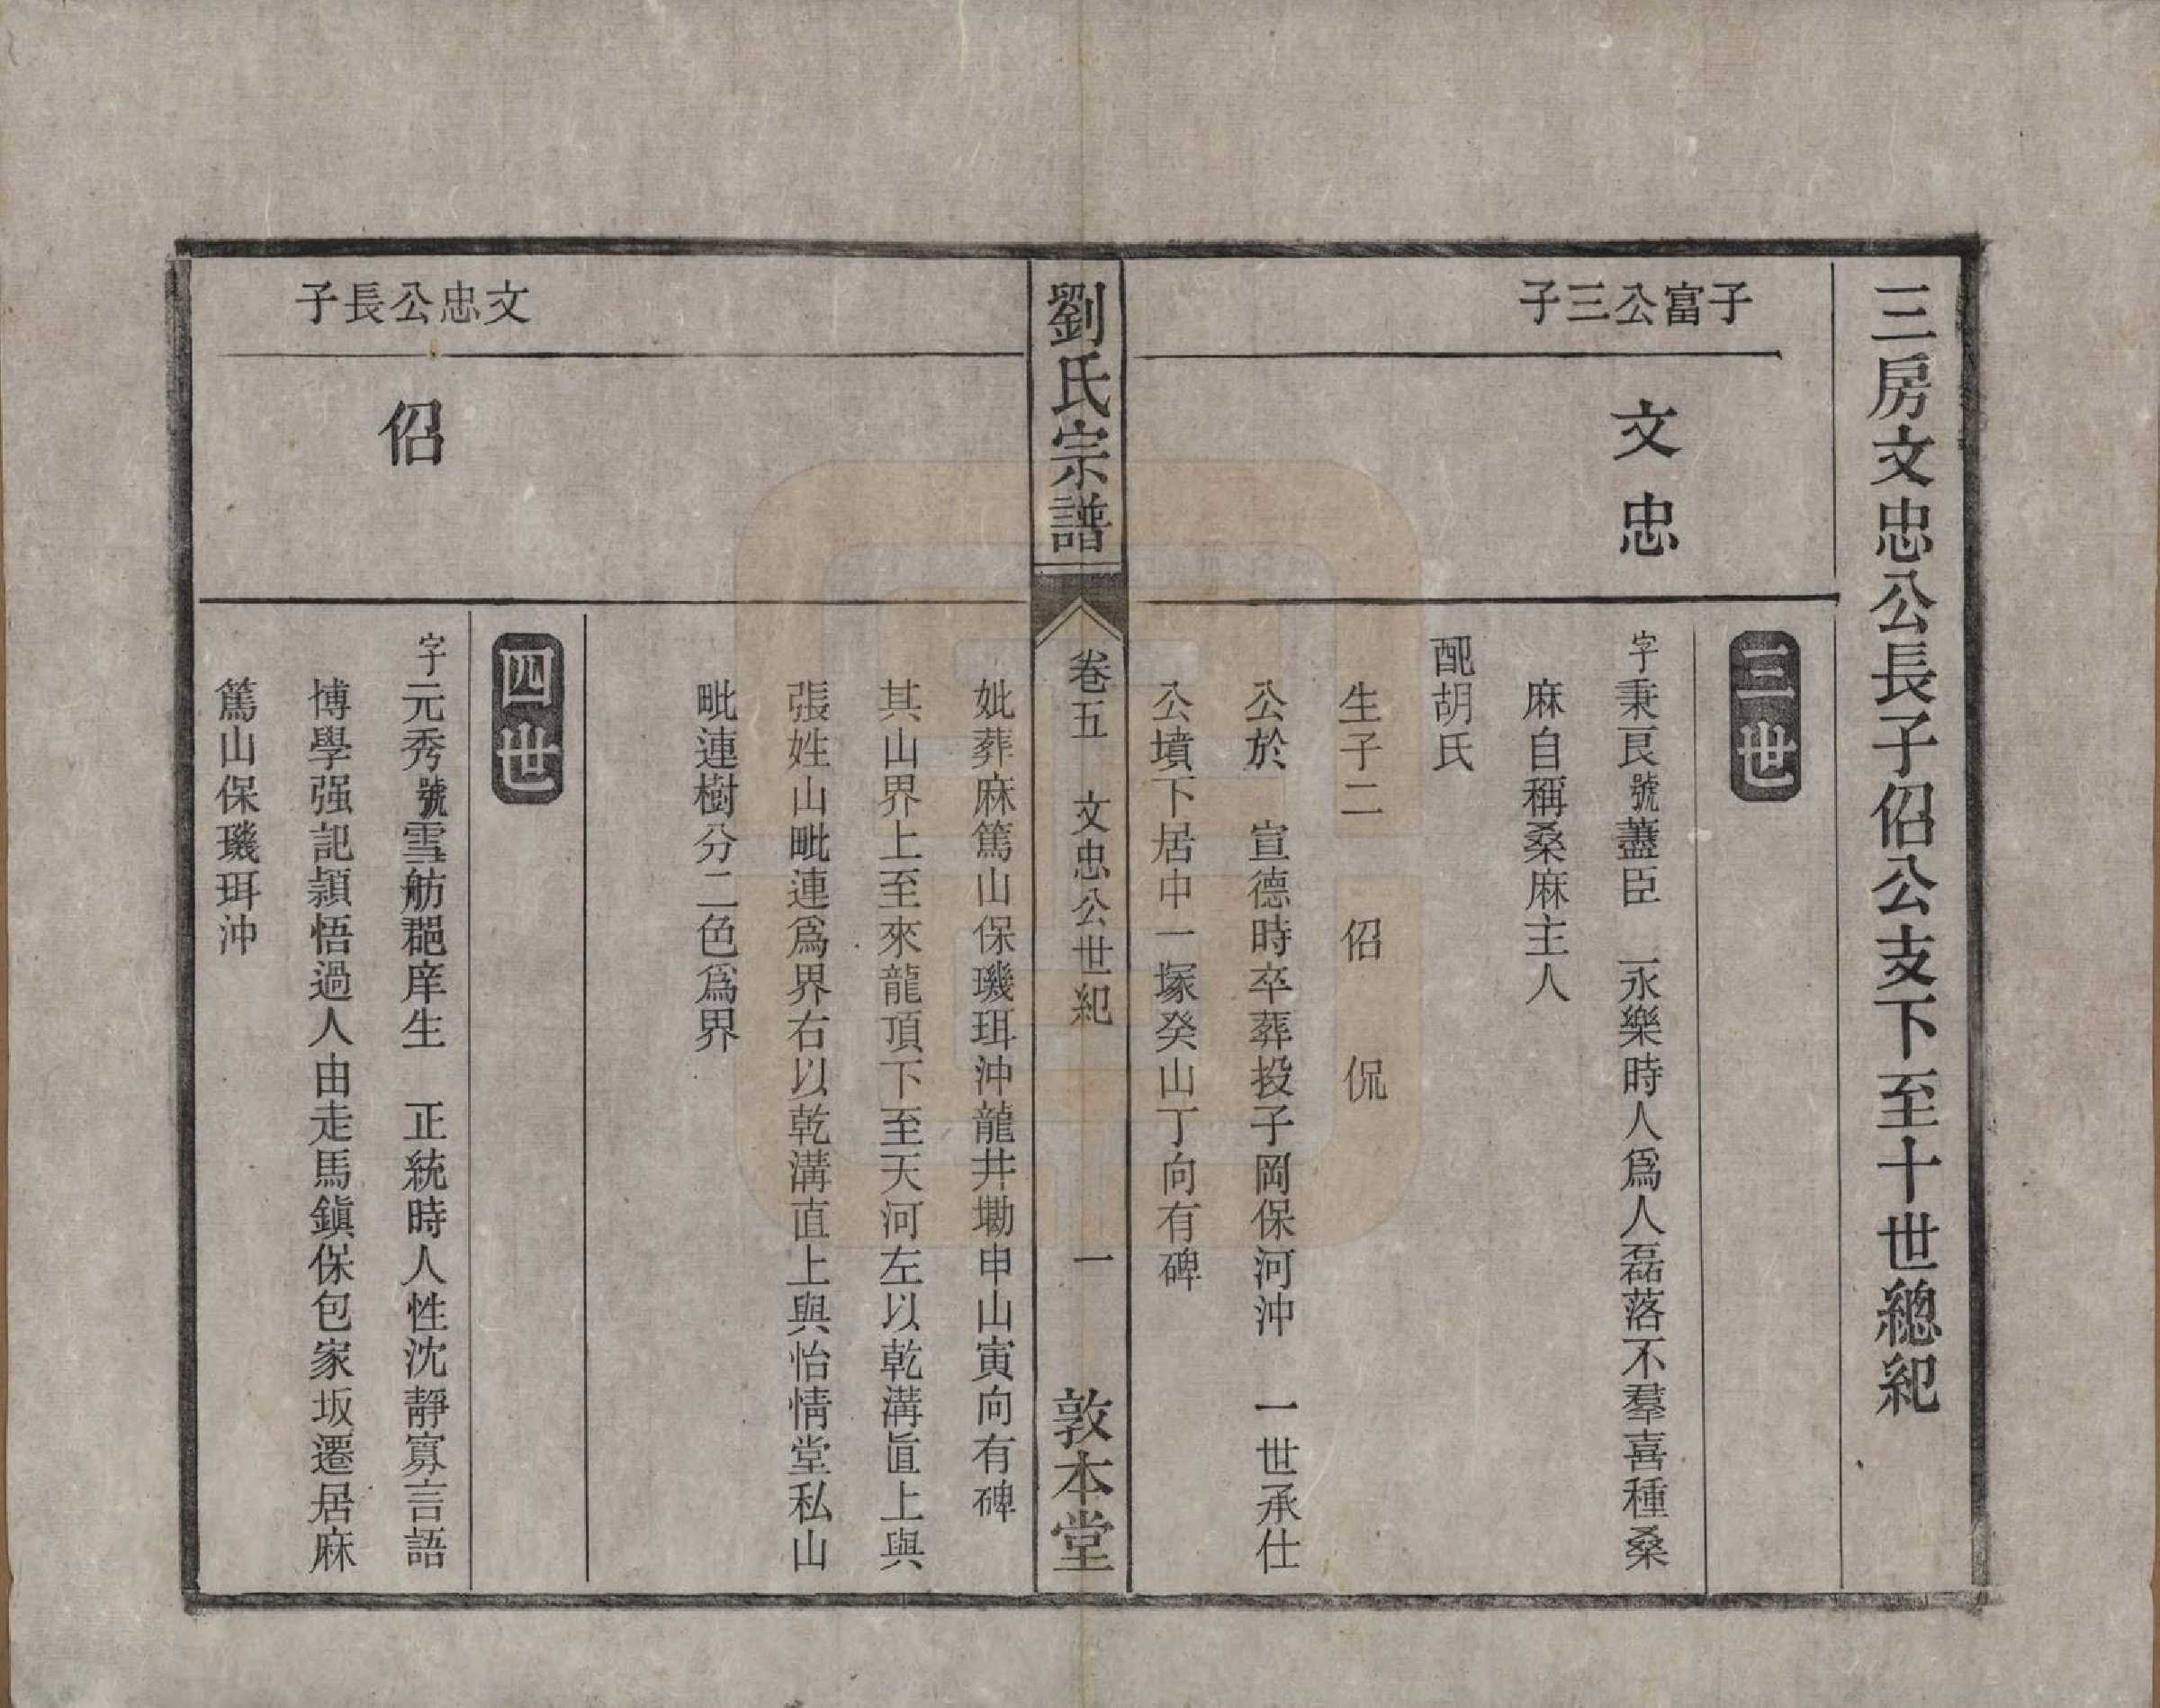 三房文忠公長子佋公支下至十世總紀
三世
子富公三子
文忠
字秉艮號藎臣 永樂時人爲人磊落不羣喜種桑
麻自稱桑麻主人
配胡氏
生子二 佋 侃
公於 宣德時卒葬投子岡保河沖 一世承仕
公墳下居中一塚癸山丁向有碑
劉氏宗譜 卷五 文忠公世紀 一 敦本堂
妣葬麻篤山保璣珥沖龍井墈申山寅向有碑
其山界上至來龍頂下至天河左以乾溝直上與
張姓山毗連爲界右以乾溝直上與怡情堂私山
毗連樹分二色爲界
四世
文忠公長子
佋
字元秀號雪舫郡庠生 正統時人性沈靜寡言語
博學强記頴悟過人由走馬鎭保包家坂遷居麻
篤山保璣珥沖